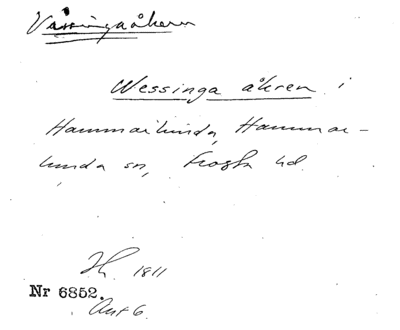 Vässingaåkern
Wessinga åkren i
Hammarlunda, Hammar-
lunda sn, Frosta hd.
1811
Nr 6852.
Akt 6.